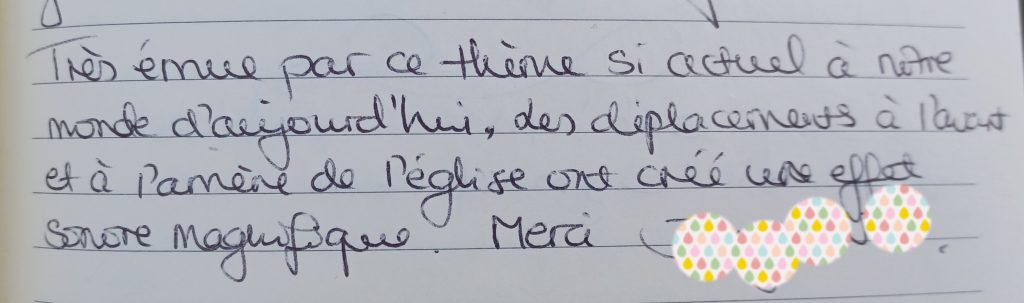 Très émue par ce thème si actuel à nôtre
monde d'aujourd'hui, des déplacements à l'avant
et à l'amène de l'église ont créé une effet
sonore magnifique. Merci